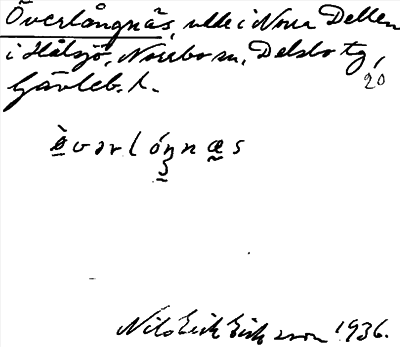 Överlångnäs, udde i Norra Dellen
i Hålsjö, Norrbo sn, Delsbo tg,
Gävleb. l. 20
övərlóŋnæs
Nils Erik Eriksson 1936.